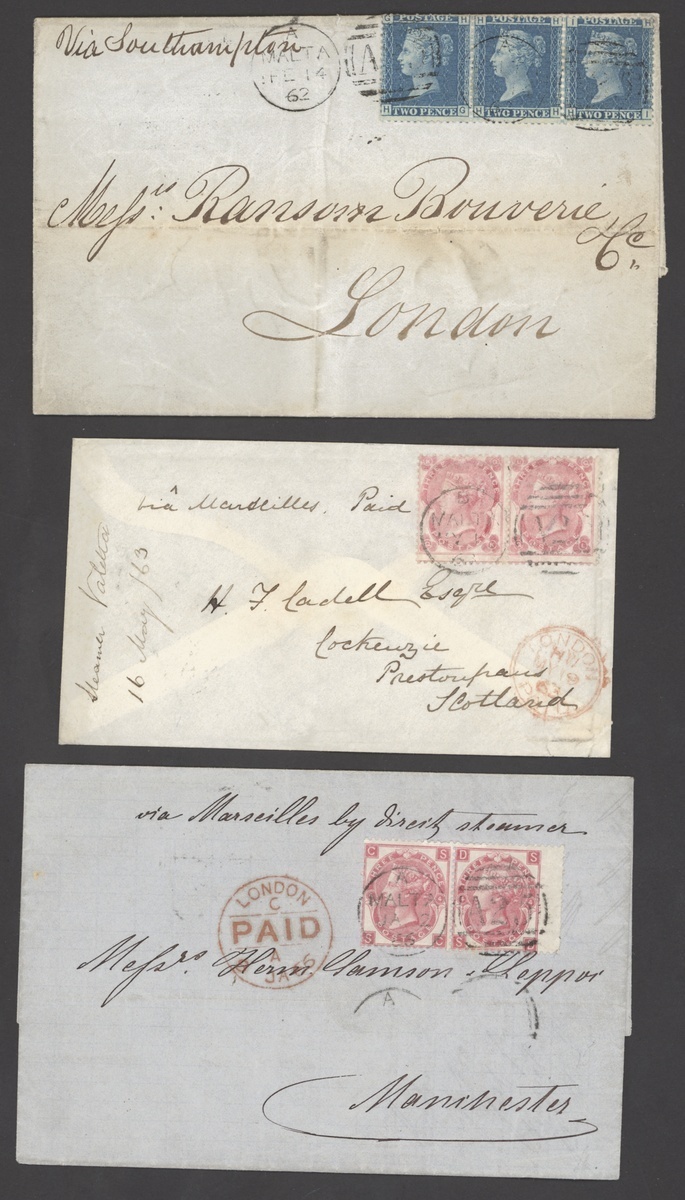 Via Southampton
A
MALTA
FE 14
62
G H H H I H
POSTAGE POSTAGE POSTAGE
TWO PENCE TWO PENCE TWO PENCE
H G H H H I
Messrs: Ransom Bouverie
& Co.
London
via Marseilles. Paid
H. F. Cadell Esqre
Cockenzie
Prestonpans
Scotland
Steamer Valetta
16 May /63
LONDON
63
PAID
via Marseilles by direct steamer
C S D S
THREE PENCE
S C S D
MALTA
LONDON
C
PAID
A
JA
Messrs Herm Samson &
A
Manchester